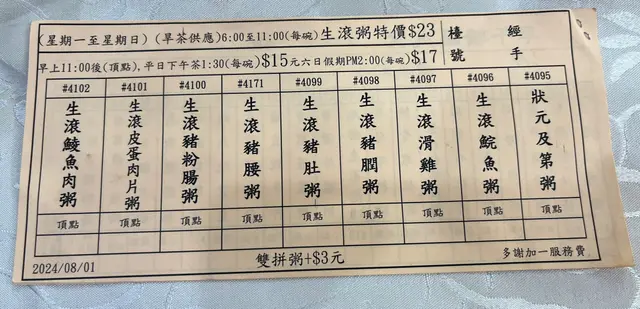 (星期一至星期日) (早茶供應) 6:00至11:00(每碗) 生滾粥特價$23
早上11:00後(頂點), 平日下午茶1:30(每碗) $15元六日假期PM2:00(每碗) $17
檯號
經手
#4102 #4101 #4100 #4171 #4099 #4098 #4097 #4096 #4095
生滾鯪魚肉粥
生滾皮蛋肉片粥
生滾豬粉腸粥
生滾豬腰粥
生滾豬肚粥
生滾豬膶粥
生滾滑雞粥
生滾鯇魚粥
狀元及第粥
頂點 頂點 頂點 頂點 頂點 頂點 頂點 頂點 頂點
2024/08/01
雙拼粥+$3元
多謝加一服務費.